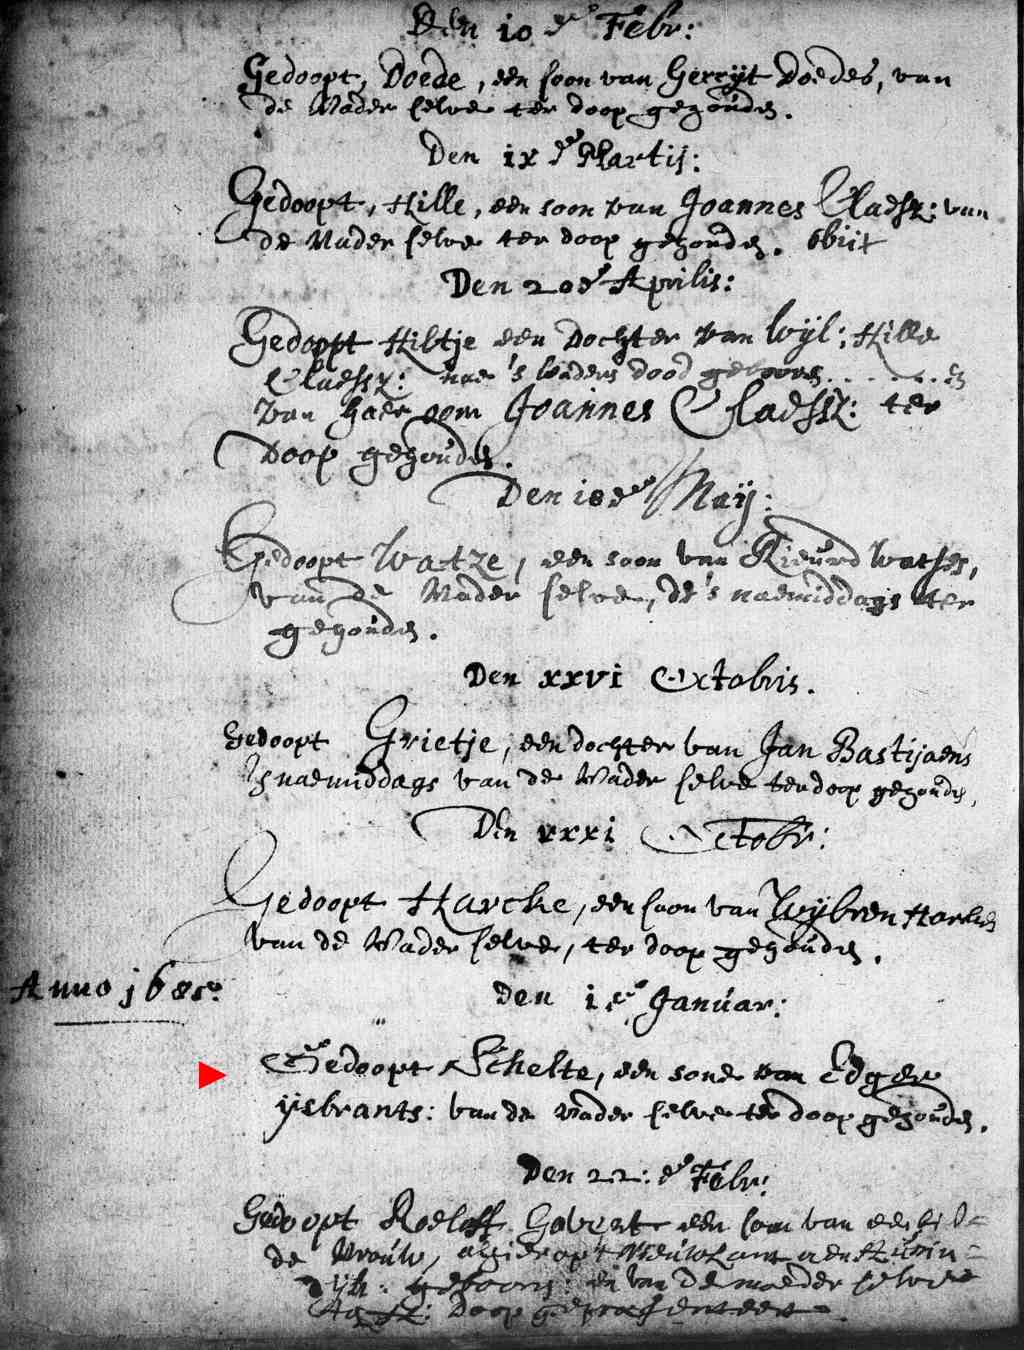 Den 10 de Febr:
Gedoopt, Doede, een soon van Gerrijt Doedes, van
de Vader selve ter doop gehouden.
Den ix de Martij:
Gedoopt, Hille, een soon van Joannes Claessz: van
de Vader selve ter doop gehouden. obiit
Den 20 de Aprilis:
Gedoopt Hiltje een Dochter van Wijl: Hille
Claessz: nae 's Vaders dood gebooren
van haer oom Joannes Claessz: ter
Doop gehouden.
Den 18 den Maij:
Gedoopt Watze, een soon van Rieurd Watses,
van de Vader selve, de 's naemiddags ter
gehouden.
Den xxvi Octobris.
Gedoopt Grietje, een dochter van Jan Bastijaens
's naemiddags van de Vader selve ter doop gehouden,
Den xxxi Octobr:
Gedoopt Harcke, een soon van Wijbren Harkes
van de Vader selve, ter doop gehouden.
Anno 1685.
den 1 en Januar:
Gedoopt Schelte, een sone van Edger
ijsbrants: van de Vader selve ter doop gehouden.
Den 22: de Febr:
Gedoopt Roeloff Govert een soon van een
de Vrouw, alhier op 't
dijk: gebooren: en van de moeder selve
Doop gepresenteert